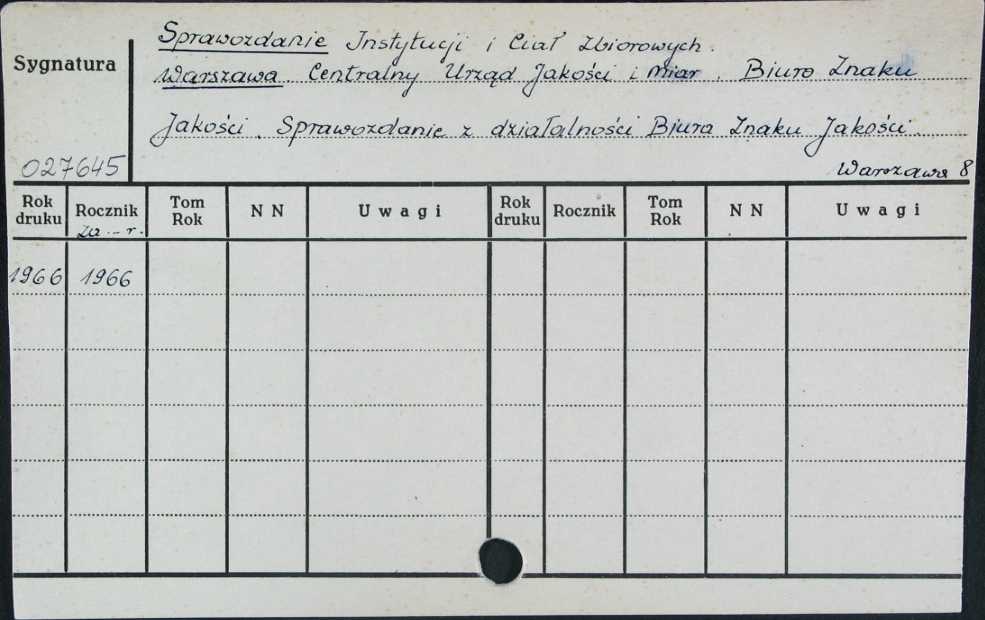 Sprawozdanie Instytucji i Ciał Zbiorowych.
Sygnatura
Warszawa. Centralny Urząd Jakości i Miar. Biuro Znaku
Jakości. Sprawozdanie z działalności Biura Znaku Jakości.
027645
Warszawa 8
Rok druku Rocznik Tom Rok N N Uwagi Rok druku Rocznik Tom Rok N N Uwagi
za -- r.
1966 1966